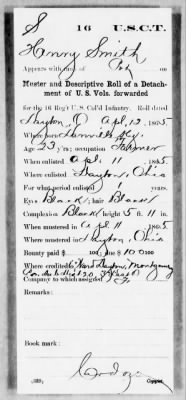 S 16 U.S.C.T.
Henry Smith
Appears with rank of Pvt on
Muster and Descriptive Roll of a Detachment
of U. S. Vols. forwarded
for the 16 Reg't U. S. Col'd Infantry. Roll dated
Dayton, O Apl. 12, 1865
Where born Danville Ky.
Age 23 y'rs; occupation Farmer
When enlisted Apl. 11, 1865
Where enlisted Dayton, Ohio
For what period enlisted 1 years.
Eyes Black; hair Black
Complexion Black; height 5 ft. 11 in.
When mustered in Apl. 11, 1865
Where mustered in Dayton, Ohio
Bounty paid $ 100; due $ 100 100
Where credited Ward Dayton, Montgomery
Co. 3d
Company to which assigned
Remarks:
Book mark:
(339) Copyist.